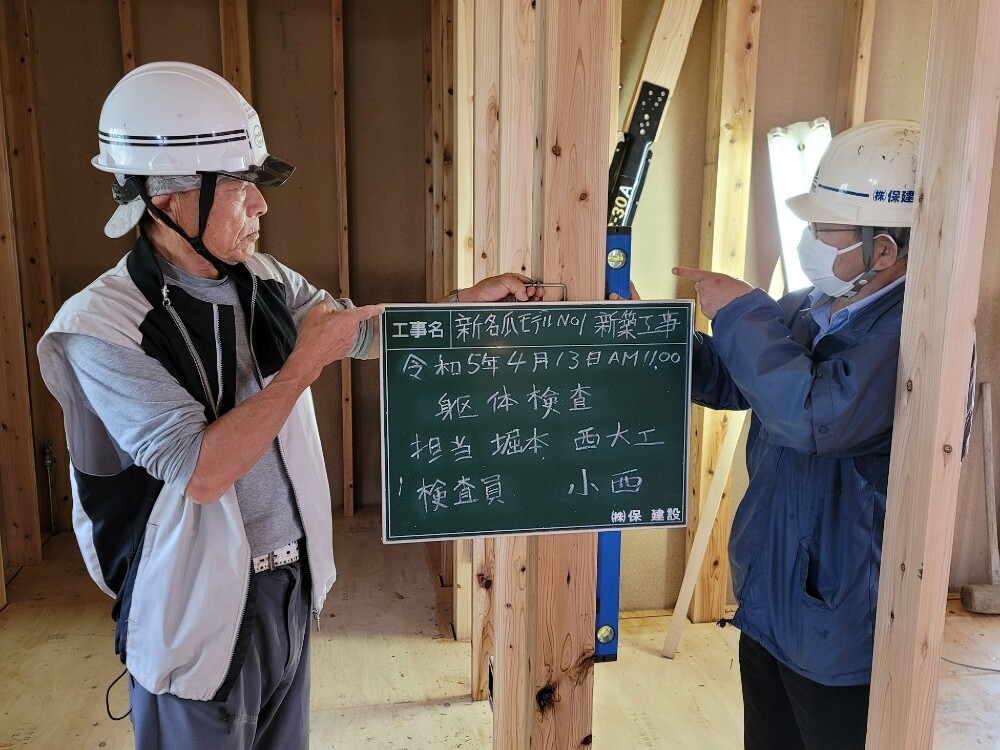 工事名 新名爪モデルNo1 新築工事
令和5年4月13日AM11:00
躯体検査
担当 堀本 西大工
検査員 小西
㈱保 建設
-30A
㈱保建